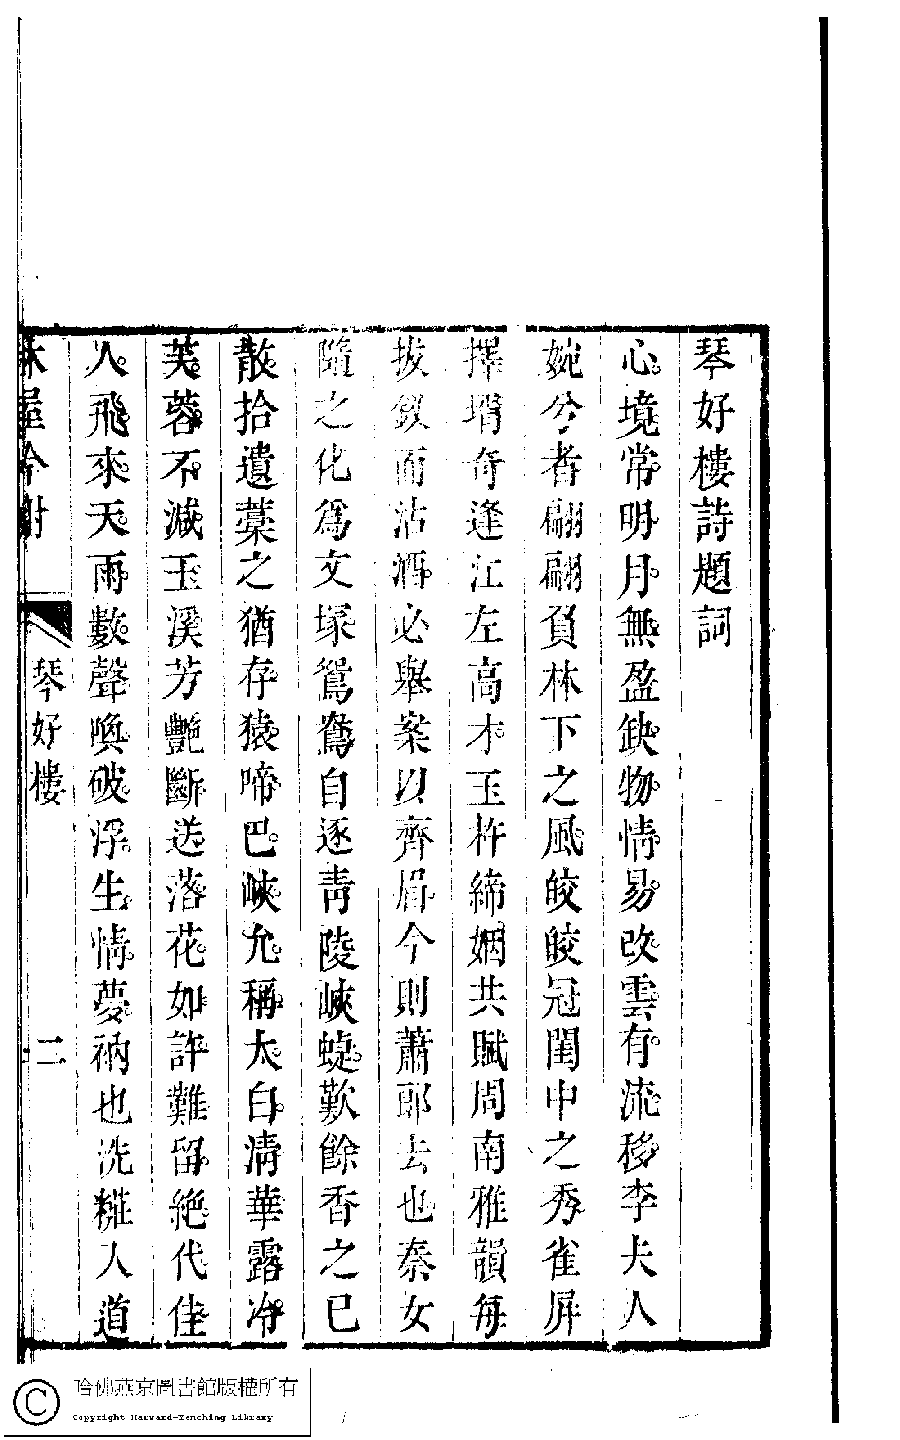 琴好樓詩題詞
心境常明月無盈缺物情易改雲有流移李夫人
婉兮者翩翩負林下之風皎皎冠閨中之秀雀屏
擇壻奇逢江左高才玉杵締姻共賦周南雅韻每
拔釵而沽酒必舉案以齊眉今則蕭郎去也秦女
隨之化爲文塚鴛鴦自逐靑陵峽蝶歎餘香之已
散拾遺藁之猶存猿啼巴峽允稱太白淸華露冷
芙蓉不減玉溪芳艷斷送落花如許難留絶代佳
人飛來天雨數聲喚破浮生情夢衲也洗糚人道
林屋吟榭
琴好樓
二
哈佛燕京圖書館版權所有
Copyright Harvard-Yenching Library